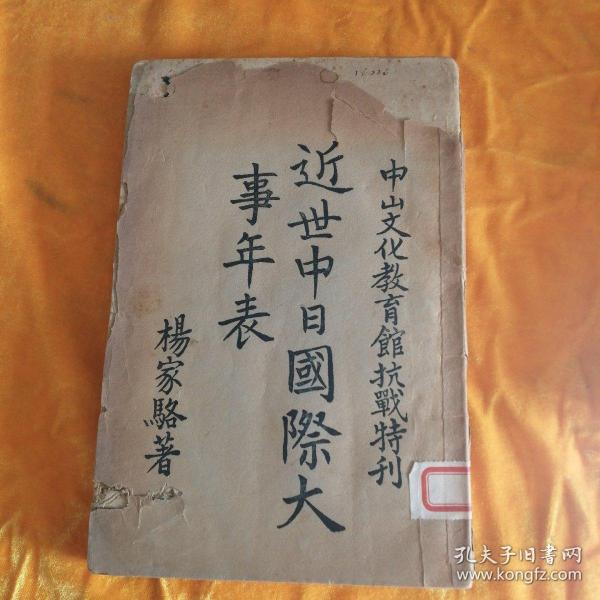 中山文化教育館抗戰特刊
近世中日國際大
事年表
楊家駱著
孔夫子旧书网
www.kongfz.com